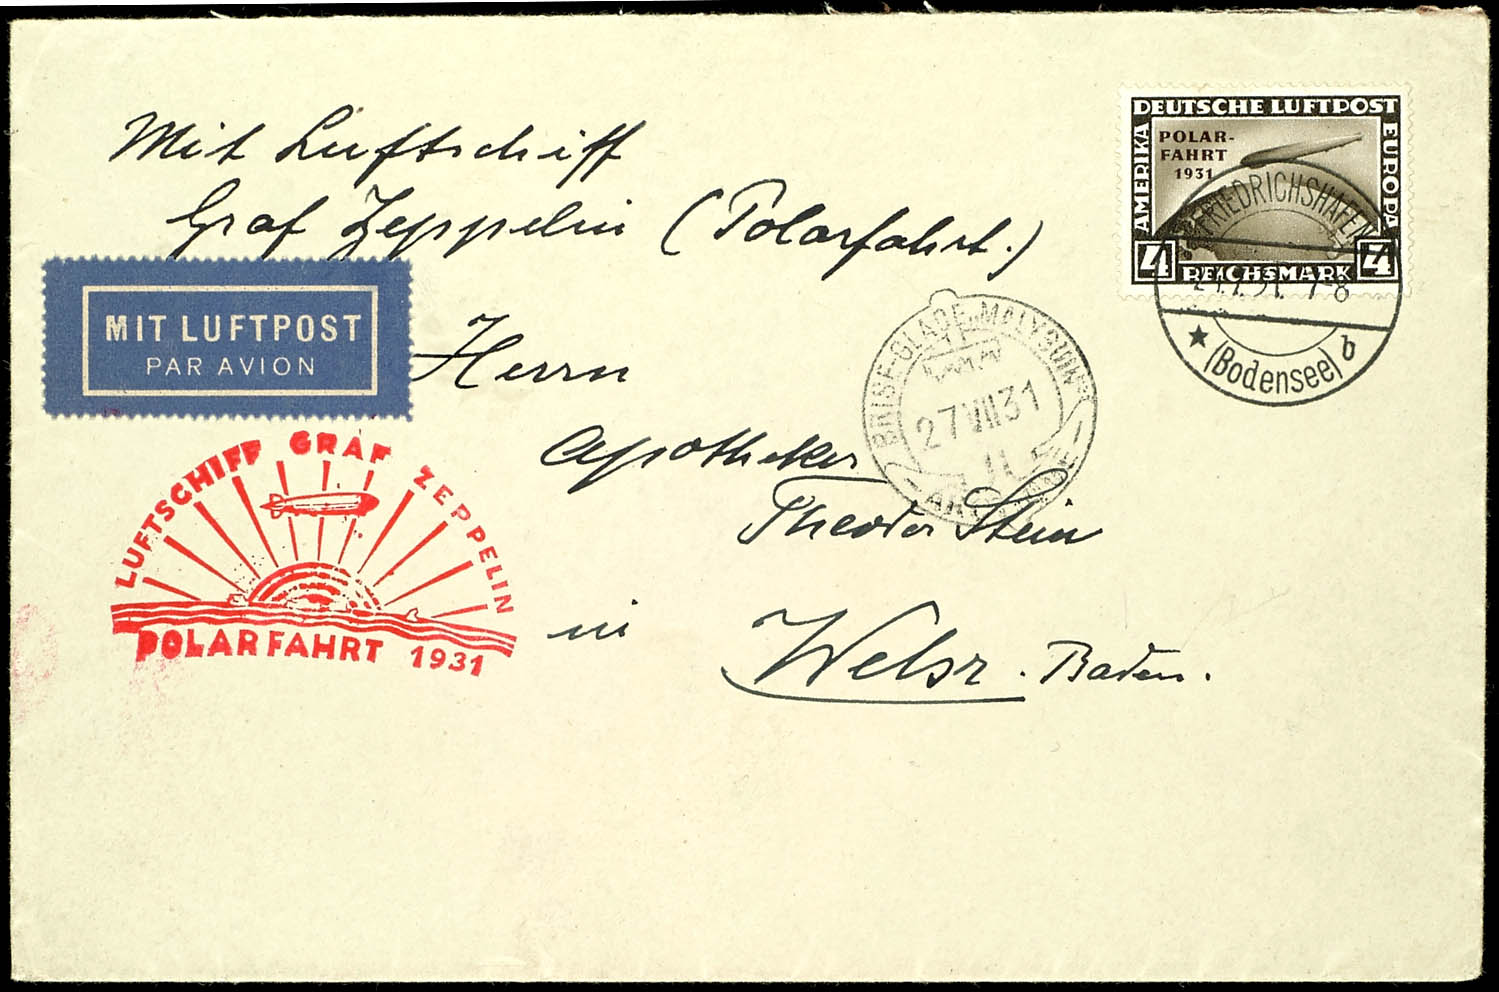 Mit Luftschiff
Graf Zeppelin (Polarfahrt.)
Herrn
Apotheker
Theodor Stein
in Welsr. Baden.
MIT LUFTPOST
PAR AVION
LUFTSCHIFF GRAF ZEPPELIN
POLARFAHRT 1931
DEUTSCHE LUFTPOST
AMERIKA
EUROPA
POLAR-
FAHRT
1931
4 REICHSMARK 4
FRIEDRICHSHAFEN
31. 7-8
(Bodensee) b
BRISE-GLACE „MALYGUIN"
27 VII 31